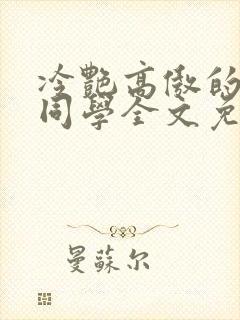 冷艷高傲的
同學全文免
曼蘇尔